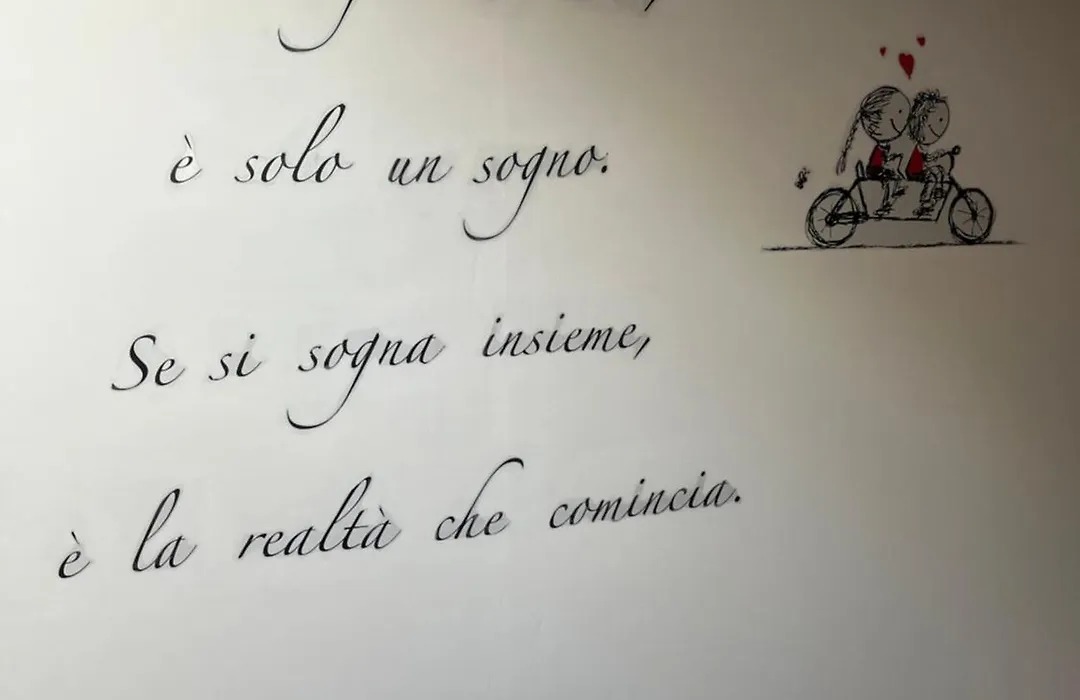 è solo un sogno.
Se si sogna insieme,
è la realtà che comincia.